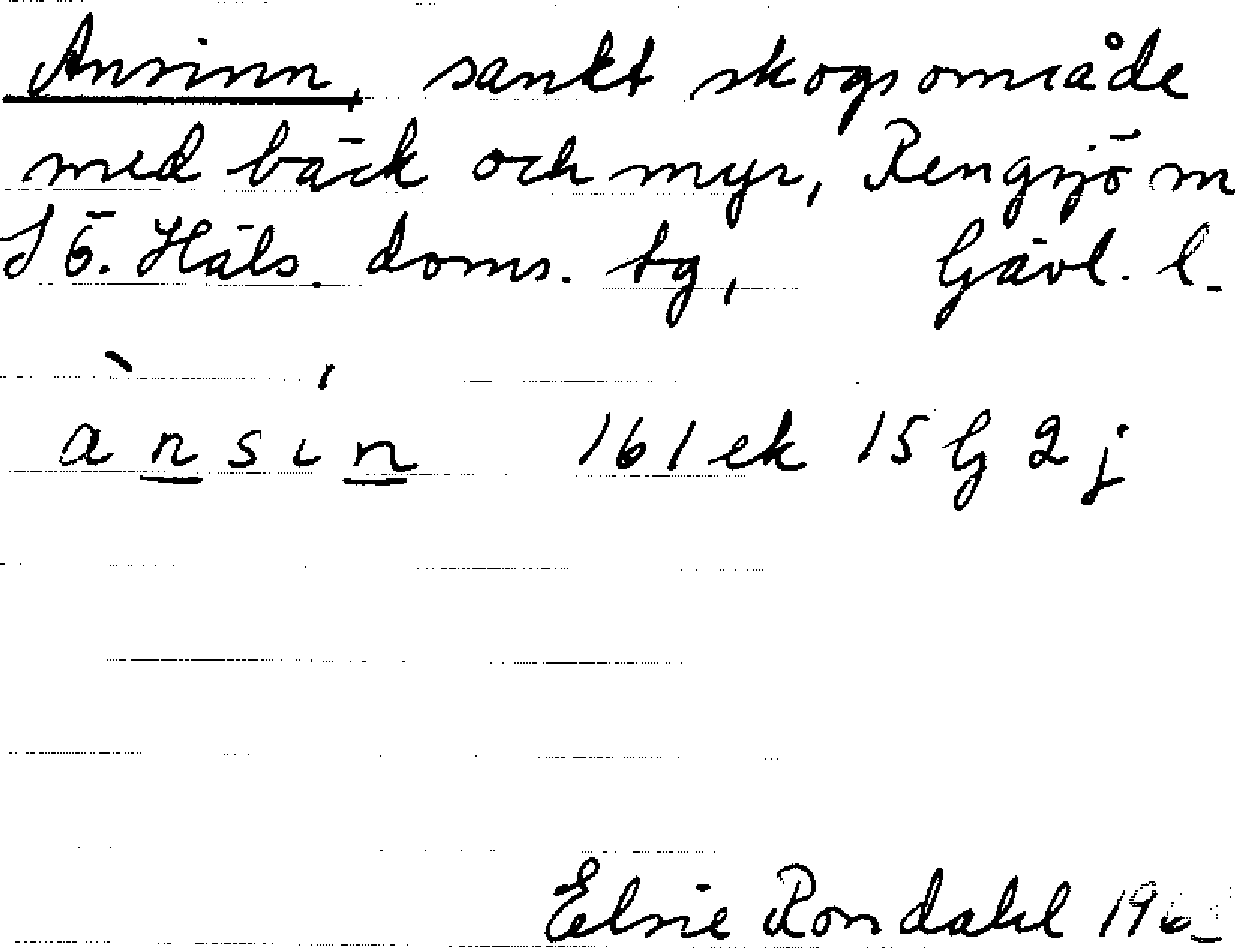 Ansinn, sankt skogsområde
med bäck och myr, Rengsjö sn
S Ö. Häls. doms. tg, Gävl. l.
a n s ı n 161 ek 15 G 2 j
Elsie Rondahl